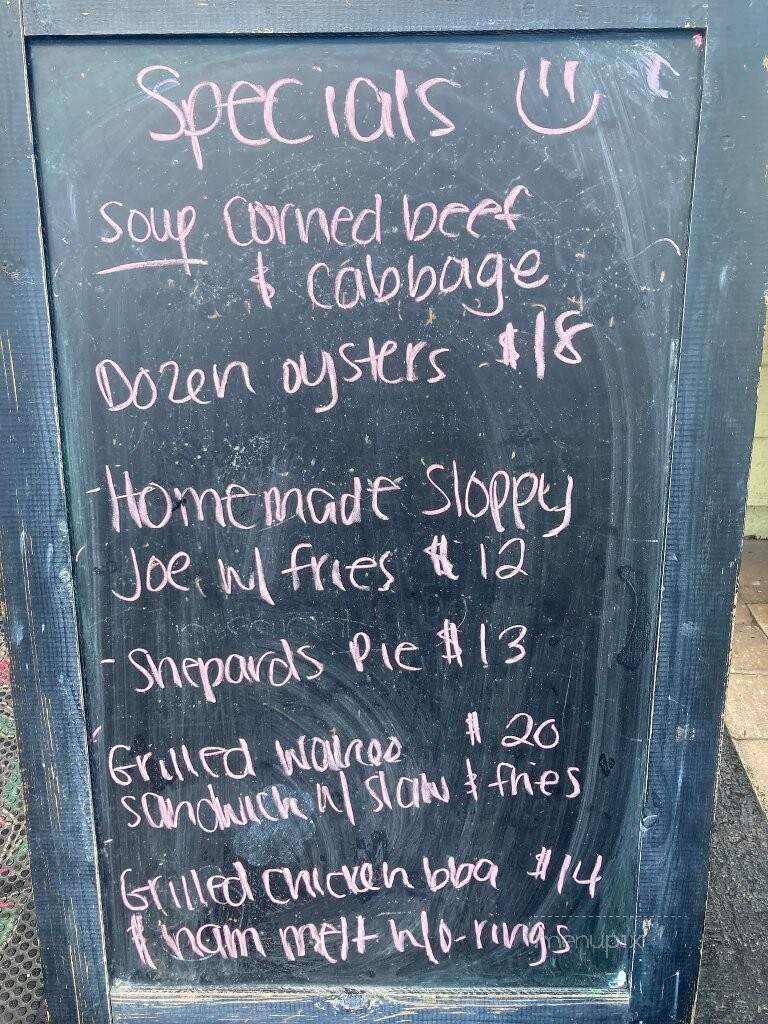 Specials
Soup Corned beef
& cabbage
Dozen oysters $18
-Homemade Sloppy
Joe w/ fries $12
-Shepards Pie $13
Grilled Wahoo $20
sandwich w/ slaw & fries
Grilled Chicken bbq $14
& ham melt w/o-rings
menupix